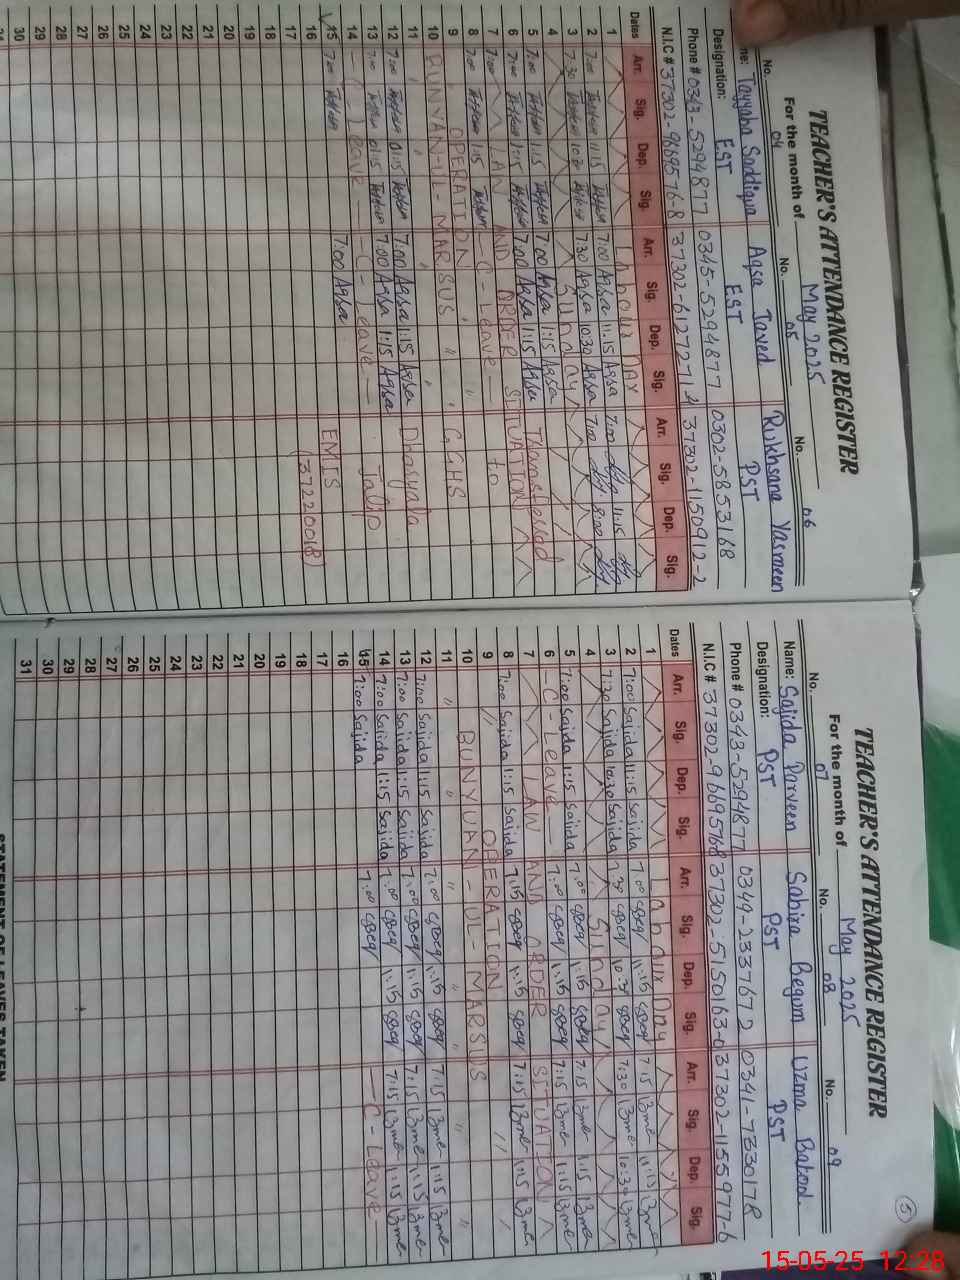 TEACHER'S ATTENDANCE REGISTER
For the month of May 2025
No. 04 No. 05 No. 06
Name: Tayyaba Saddiqua Aqsa Javed Rukhsana Yasmeen
Designation: EST EST PST
Phone # 0343-5294877 0345-5294877 0302-5853168
N.I.C # 37302-9669576-8 37302-6127271-2 37302-1150912-2
Dates Arr. Sig. Dep. Sig. Arr. Sig. Dep. Sig. Arr. Sig. Dep. Sig.
1 Labour Day
2 7:00 11:15 7:00 Aqsa 11:15 Aqsa 7:00 11:15
3 7:30 10:30 7:30 Aqsa 10:30 Aqsa 7:00 8:00
4 Sunday
5 7:00 1:15 7:00 Aqsa 1:15 Aqsa Transferred
6 7:00 1:15 7:00 Aqsa 1:15 Aqsa
7 7:00 LAW AND ORDER SITUATION to
8 7:00 1:15 C-Leave
9 OPERATION " " GGHS
10 BUNYAN-UL-MARSUS "
11 " " " Dhayala
12 7:00 01:15 7:00 Aqsa 1:15 Aqsa
13 7:00 01:15 7:00 Aqsa 1:15 Aqsa Jalip
14 C-Leave C-Leave
15 7:00 7:00 Aqsa EMIS
16 (37220018)
17
18
19
20
21
22
23
24
25
26
27
28
29
30
31
5
TEACHER'S ATTENDANCE REGISTER
For the month of May 2025
No. 07 No. 08 No. 09
Name: Sajida Parveen Sabira Begum Uzma Batool
Designation: PST PST PST
Phone # 0343-5294877 0349-2337672 0341-7330178
N.I.C # 37302-96695768 37302-5150163-0 37302-1155977-6
Dates Arr. Sig. Dep. Sig. Arr. Sig. Dep. Sig. Arr. Sig. Dep. Sig.
1 Labour Day
2 7:00 Sajida 11:15 Sajida 7:00 11:15 7:15 11:15
3 7:30 Sajida 10:30 Sajida 7:30 10:30 7:30 10:30
4 Sunday
5 7:00 Sajida 1:15 Sajida 7:00 1:15 7:15 1:15
6 C-Leave 7:00 1:15 7:15 1:15
7 LAW AND ORDER SITUATION
8 7:00 Sajida 1:15 Sajida 7:15 1:15 7:15 1:15
9 " OPERATION "
10 BUNYUAN-UL-MARSUS
11 " " " " "
12 7:00 Sajida 1:15 Sajida 7:00 1:15 7:15 1:15
13 7:00 Sajida 1:15 Sajida 7:00 1:15 7:15 1:15
14 7:00 Sajida 1:15 Sajida 7:00 1:15 7:15 1:15
15 7:00 Sajida 7:00 C-Leave
16
17
18
19
20
21
22
23
24
25
26
27
28
29
30
31
STATEMENT OF LEAVES TAKEN
15-05-25 12:28